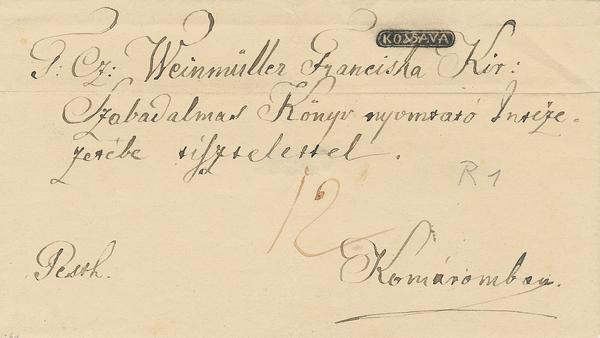 KOSSAVA
T: Cz: Weinmüller Franciska Kir:
Szabadalmas Könyv nyomtató Intéze-
zetébe tisztelettel.
R 1
12
Pesth.
Komáromban.